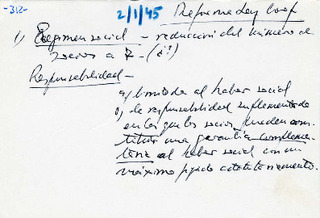 -313-
2/1/45 Reforma Ley Coop
1) Régimen social - reducción del número de
socios a 7 - (¿?)
Responsabilidad -
a) limitada al haber social
b) de responsabilidad suplementada
en las que los socios pueden cons-
tituir una garantía complemen-
taria al haber social con un
máximo fijado estatutariamente.